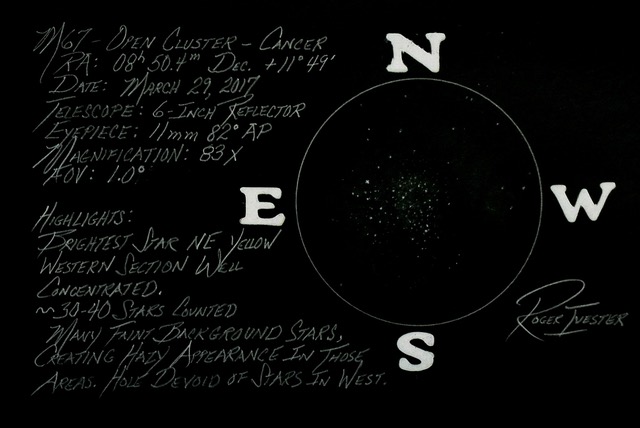 M67 - Open Cluster - Cancer
RA: 08h 50.4m Dec. +11° 49'
Date: March 29, 2017
Telescope: 6-Inch Reflector
Eyepiece: 11mm 82° AP
Magnification: 83x
FOV: 1.0°
Highlights:
Brightest Star NE Yellow
Western Section Well
Concentrated.
~30-40 Stars Counted
Many Faint Background Stars,
Creating Hazy Appearance In Those
Areas. Hole Devoid of Stars In West.
N
E
W
S
Roger Ivester